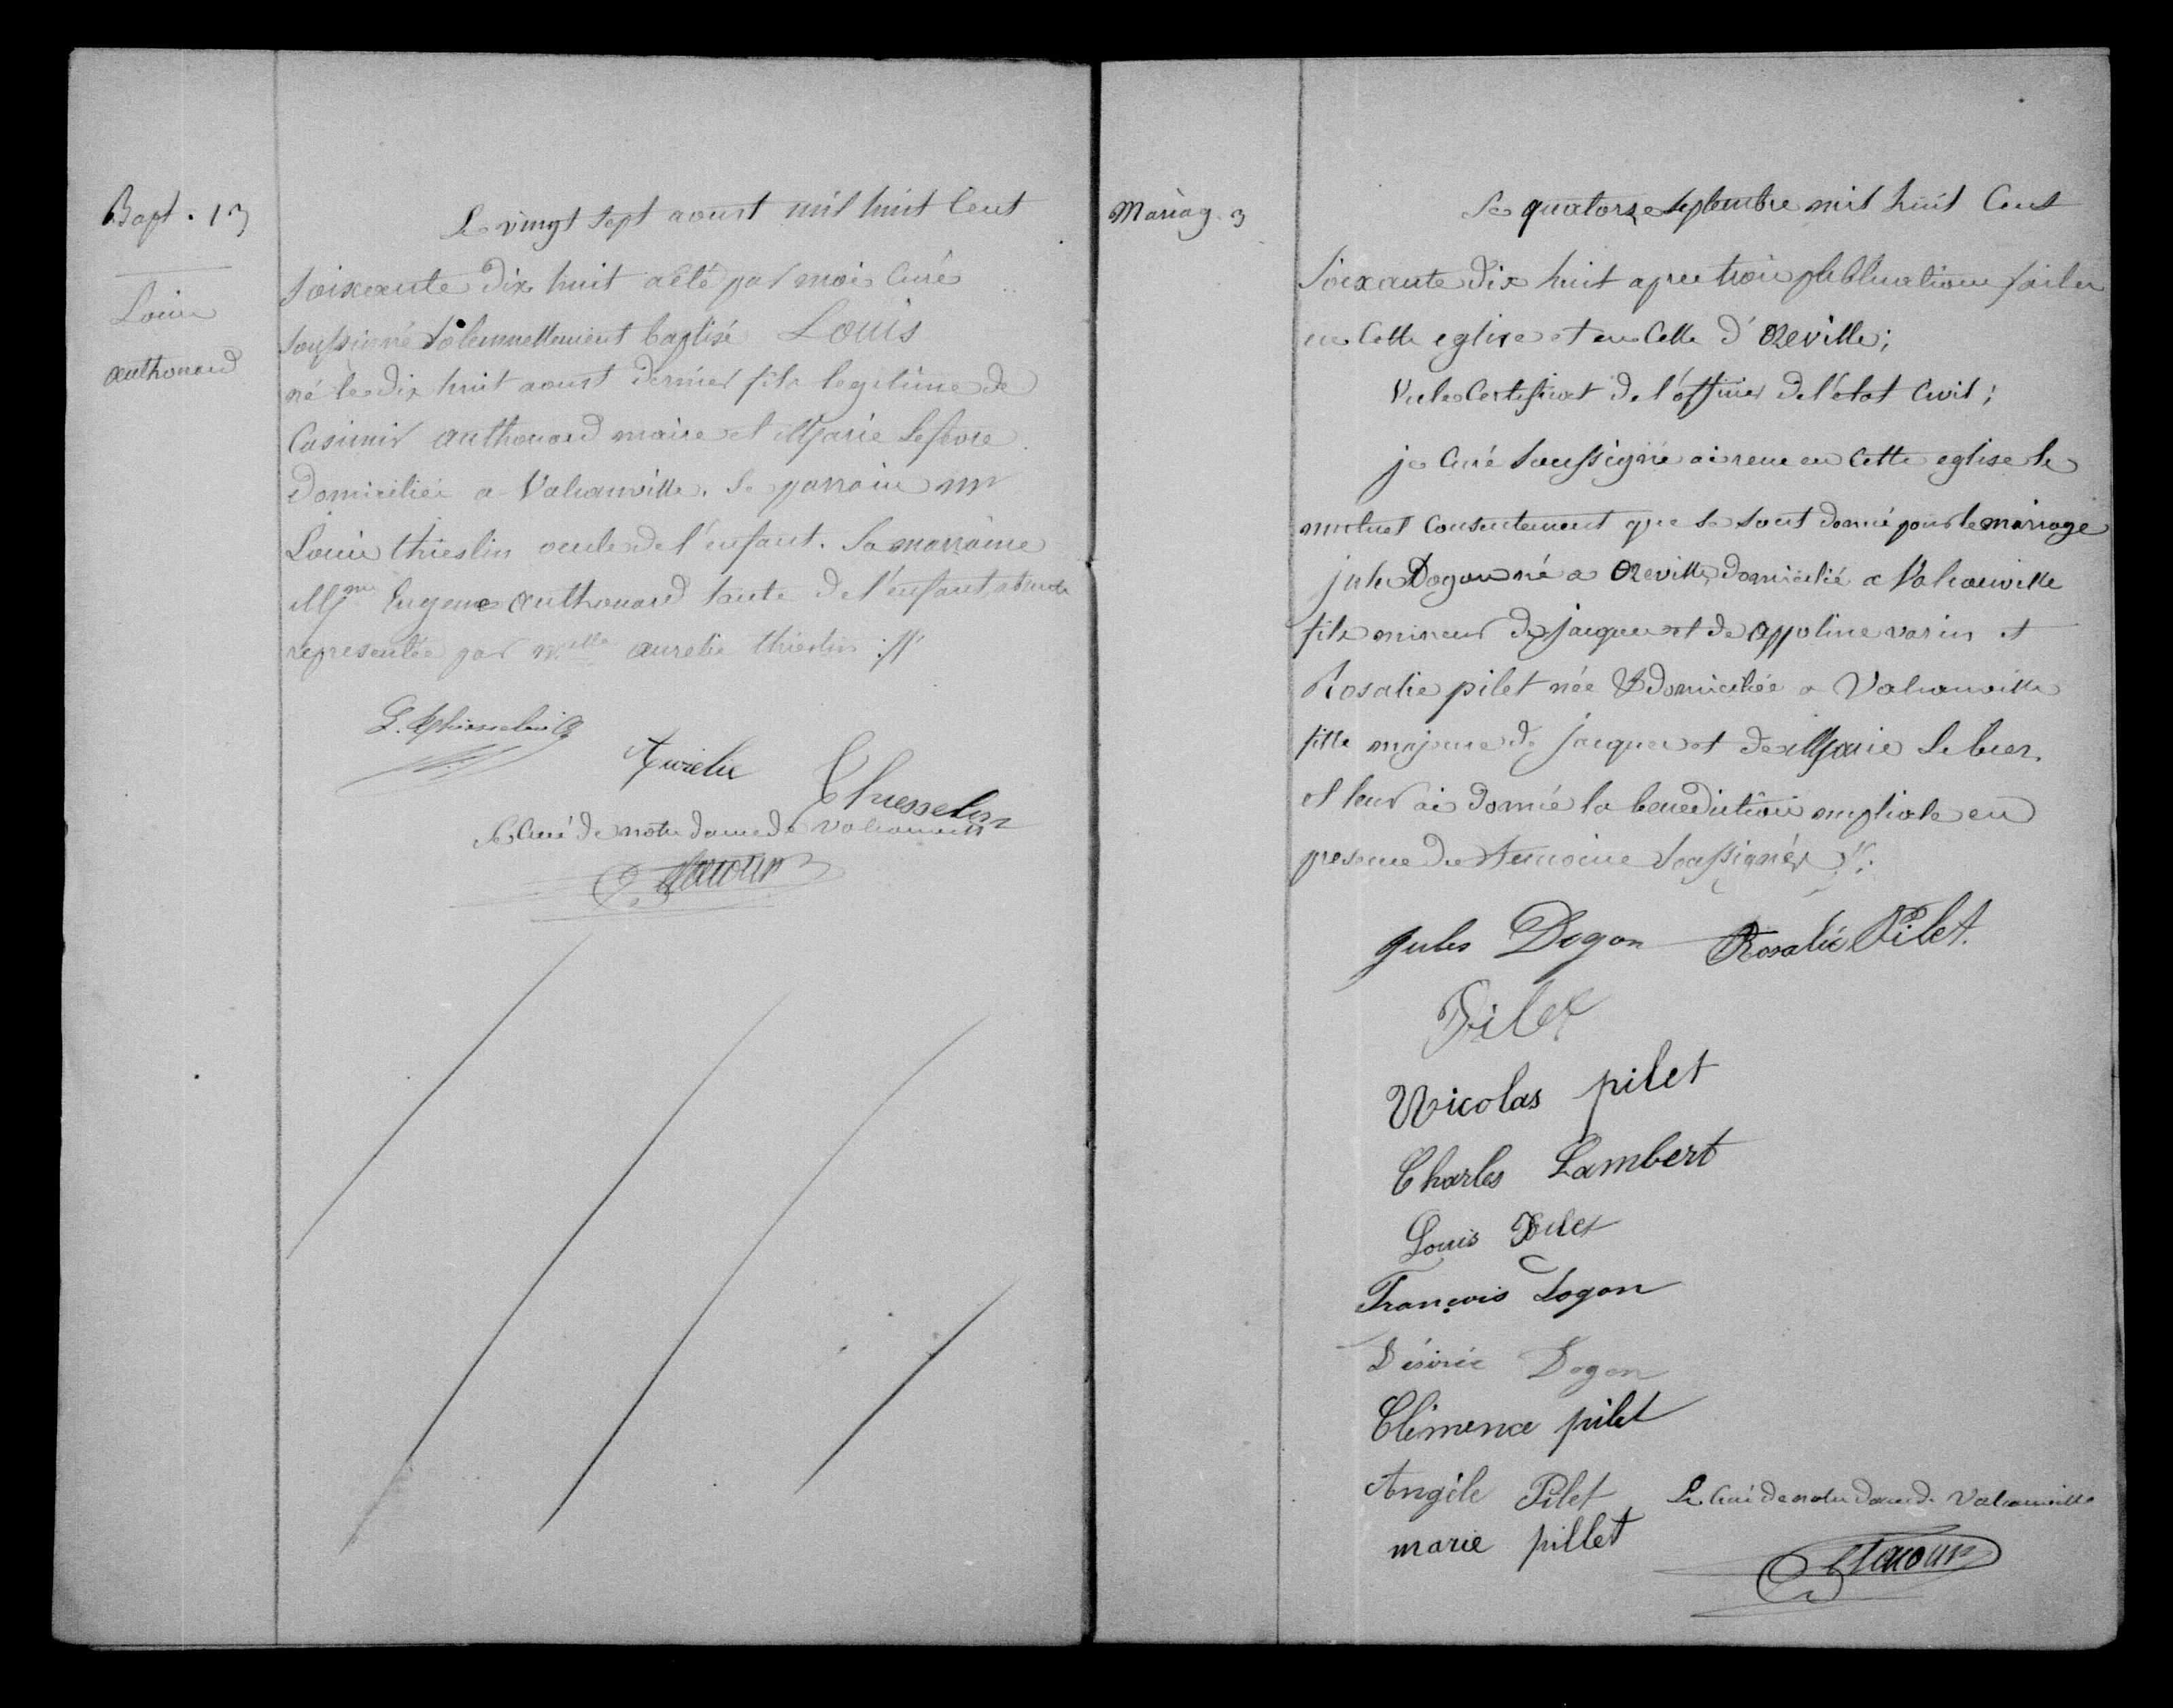 Bapt. 13
Louis
authouard
Le vingt sept aoust mil huit Cent
soixante dix huit a été par moi Curé
soussigné solemnellement baptisé Louis
né le dix huit aoust dernier fils legitime de
Casimir authouard maire et Marie Lefevre
domiciliés a Valcanville. Le parrain mr
Louis thieslin oncle de l'enfant. La marraine
Mme Eugene authouard tante de l'enfant absente
representée par melle aurelie thieslin ://
Aurelie Thiesselin
Le Curé de notre dame de Valcanville
Mariag. 3
Le quatorze septembre mil huit Cent
soixante dix huit apres trois publications faites
en Cette eglise et en Celle d'Reville;
Vu le Certificat de l'officier de l'état Civil;
je Curé soussigné ai recu en Cette eglise le
mutuel Consentement que se sont donné pour le mariage
jules Dogon né a Reville domicilié a Valcanville
fils mineur de jacques et de appoline varin et
Rosalie pilet née & domiciliée a Valcanville
fille majeure de jacques et de Marie Le bier
et leur ai donné la benediction nuptiale en
presence des temoins soussignés //:
Jules Dogon Rosalie Pilet.
Pilet
Nicolas pilet
Charles Lambert
Louis Pilet
François Dogon
Désirée Dogon
Clémence pilet
Angèle Pilet
Le Curé de notre dame de Valcanville
marie pillet